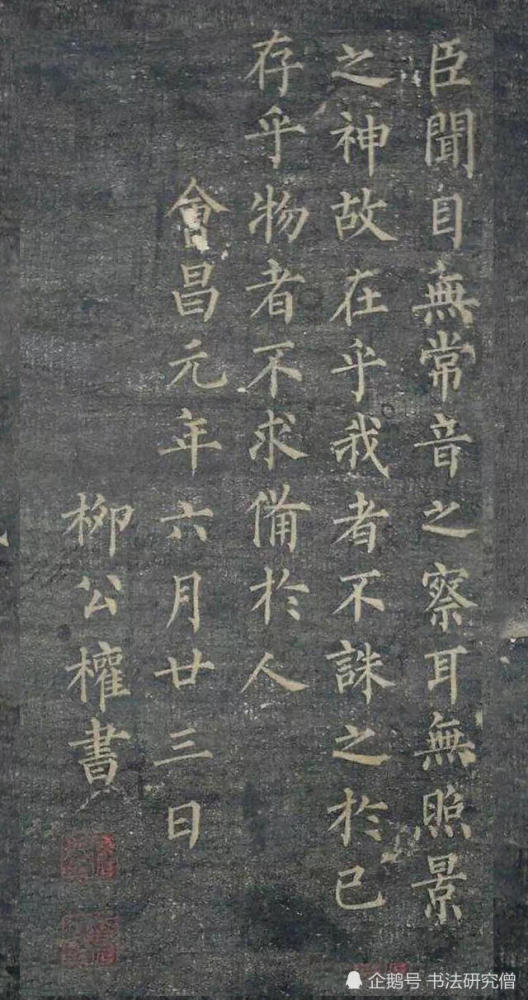 臣聞目無常音之察耳無照景
之神故在乎我者不誅之於己
存乎物者不求備於人
會昌元年六月廿三日
柳公權書
企鹅号 书法研究僧